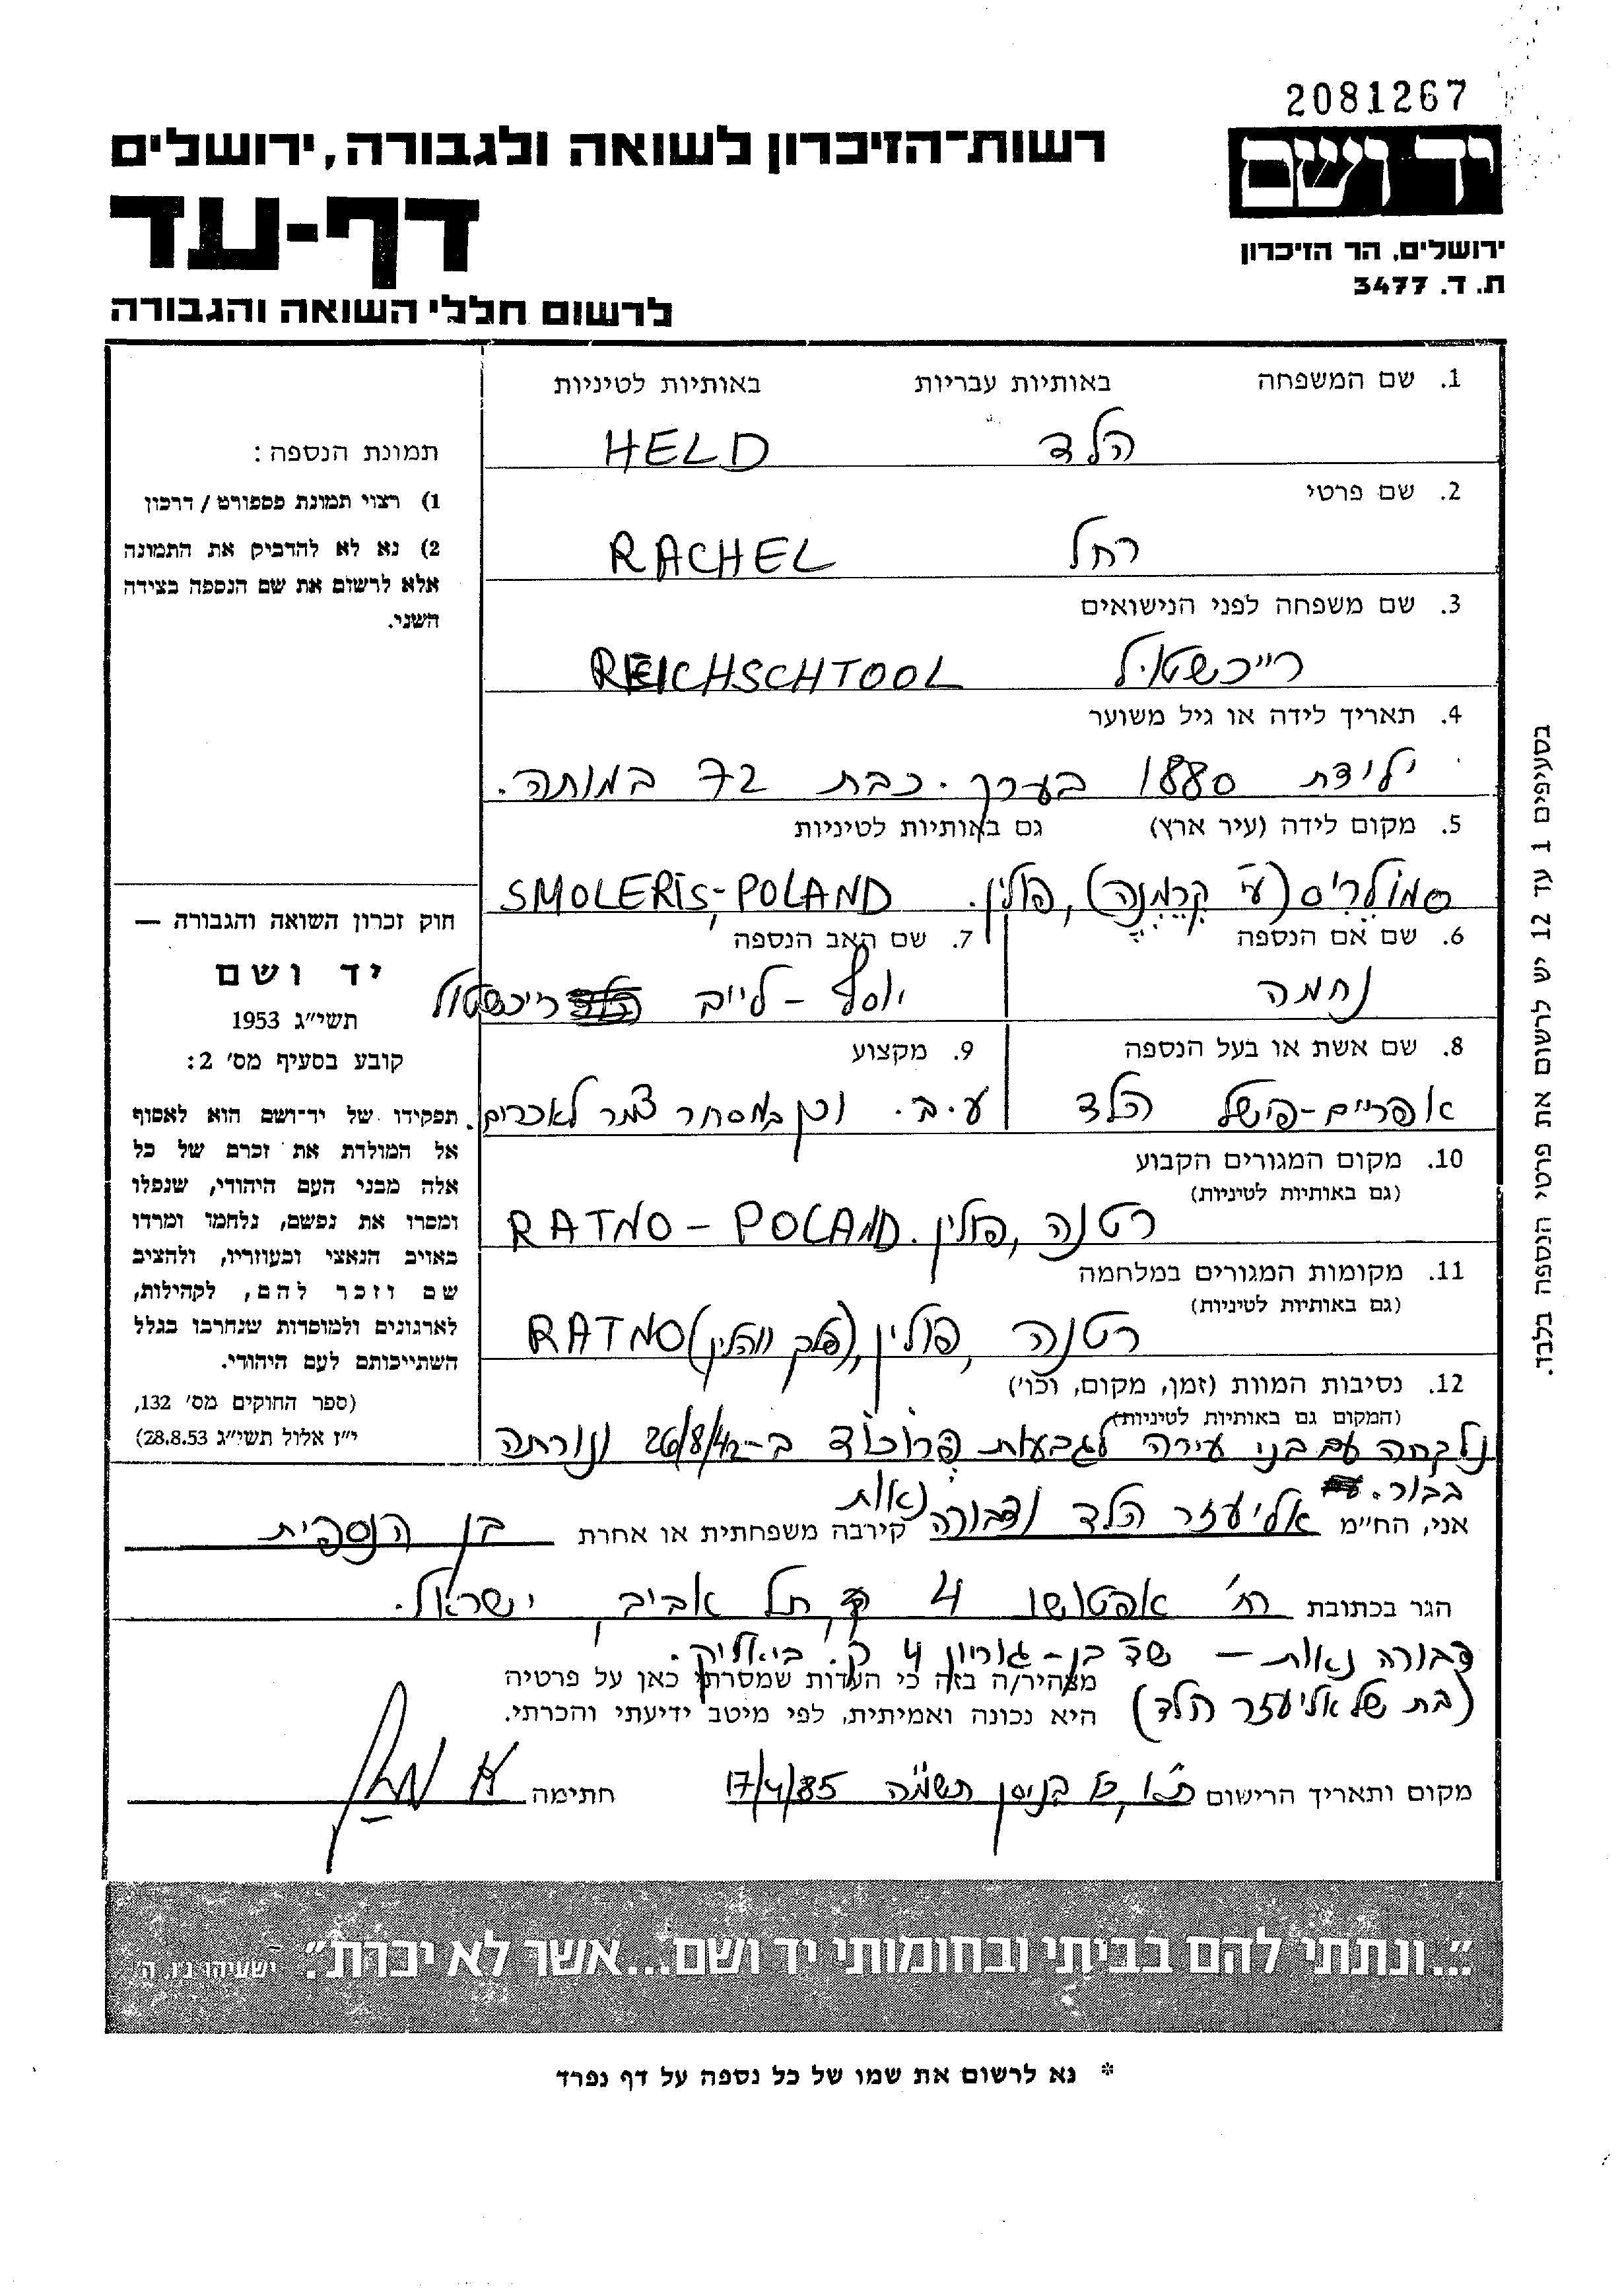 2081267
רשות־הזיכרון לשואה ולגבורה, ירושלים
יד ושם
דף-עד
ירושלים, הר הזיכרון
ת. ד. 3477
לרשום חללי השואה והגבורה
1. שם המשפחה באותיות עבריות באותיות לטיניות
הלד HELD
2. שם פרטי
רחל RACHEL
3. שם משפחה לפני הנישואים
רייכשטול REICHSCHTOOL
4. תאריך לידה או גיל משוער
ילידת 1880 בערך. כבת 72 במותה.
5. מקום לידה (עיר ארץ) גם באותיות לטיניות
סמולריס (ע"י קרמנה), פולין. SMOLERIS-POLAND
6. שם אם הנספה
נחמה
7. שם האב הנספה
יוסף - לייב רייכשטול
8. שם אשת או בעל הנספה
אפריים-פישל הלד
9. מקצוע
ע.ב. וכן במסחר צמר לאכרים.
10. מקום המגורים הקבוע
(גם באותיות לטיניות)
רטנה, פולין. RATNO - POLAND
11. מקומות המגורים במלחמה
(גם באותיות לטיניות)
רטנה, פולין, (פלך ווהלין) RATNO
12. נסיבות המוות (זמן, מקום, וכו')
(המקום גם באותיות לטיניות)
נלקחה עם בני עירה לגבעות פרוכוד ב-26/8/42 ונורתה
בבור.
תמונת הנספה:
1) רצוי תמונת פספורט / דרכון
2) נא לא להדביק את התמונה
אלא לרשום את שם הנספה בצידה
השני.
חוק זכרון השואה והגבורה —
יד ושם
תשי״ג 1953
קובע בסעיף מס׳ 2:
תפקידו של יד־ושם הוא לאסוף
אל המולדת את זכרם של כל
אלה מבני העם היהודי, שנפלו
ומסרו את נפשם, נלחמו ומרדו
באויב הנאצי ובעוזריו, ולהציב
שם וזכר להם, לקהילות,
לארגונים ולמוסדות שנחרבו בגלל
השתייכותם לעם היהודי.
(ספר החוקים מס׳ 132,
י״ז אלול תשי״ג 28.8.53)
בסעיפים 1 עד 12 יש לרשום את פרטי הנספה בלבד.
אני, הח״מ אליעזר הלד ודבורה נאות קירבה משפחתית או אחרת בן הנספית
הגר בכתובת רח' אפטושו 4 תל אביב, ישראל.
דבורה נאות - שד בן-גוריון 4 ק. ביאליק.
(בת של אליעזר הלד)
מצהיר/ה בזה כי העדות שמסרתי כאן על פרטיה
היא נכונה ואמיתית, לפי מיטב ידיעתי והכרתי.
מקום ותאריך הרישום ת"א, בניסן תשמ"ה 17/4/85 חתימה
״...ונתתי להם בביתי ובחומותי יד ושם...אשר לא יכרת״. ישעיהו נ״ו, ה׳
* נא לרשום את שמו של כל נספה על דף נפרד